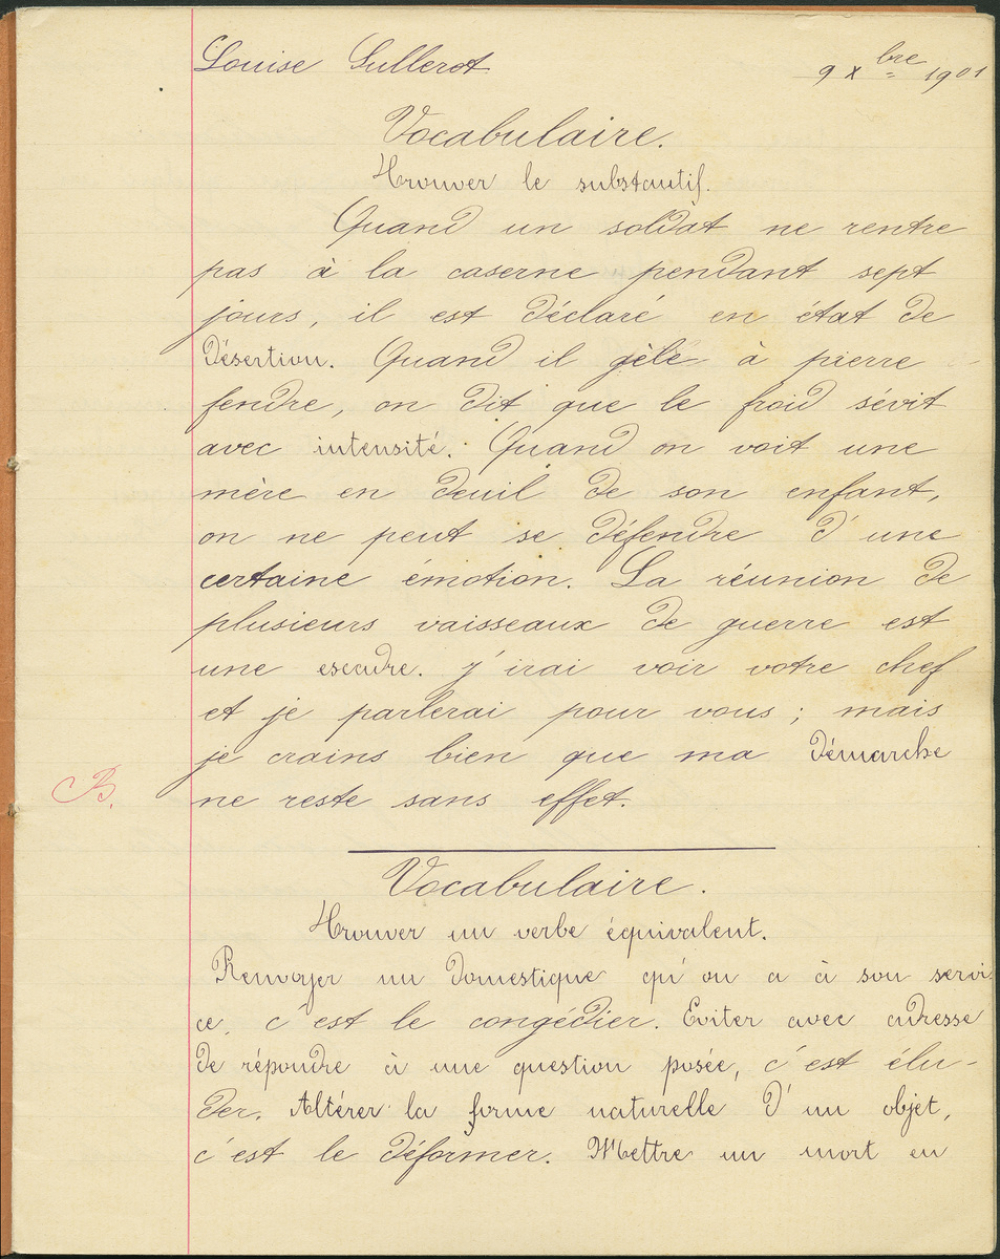 Louise Sullerot 9 Xbre 1901
Vocabulaire.
Trouver le substantif.
Quand un soldat ne rentre
pas à la caserne pendant sept
jours, il est déclaré en état de
Désertion. Quand il gèle à pierre -
fendre, on dit que le froid sévit
avec intensité. Quand on voit une
mère en deuil de son enfant,
on ne peut se défendre d'une
certaine émotion. La réunion de
plusieurs vaisseaux de guerre est
une escadre. J'irai voir votre chef
et je parlerai pour vous ; mais
je crains bien que ma démarche
B. ne reste sans effet.
Vocabulaire.
Trouver un verbe équivalent.
Renvoyer un domestique qu'on a à son servi
ce, c'est le congédier. Eviter avec adresse
de répondre à une question posée, c'est élu-
der. Altérer la forme naturelle d'un objet,
c'est le déformer. Mettre un mort en